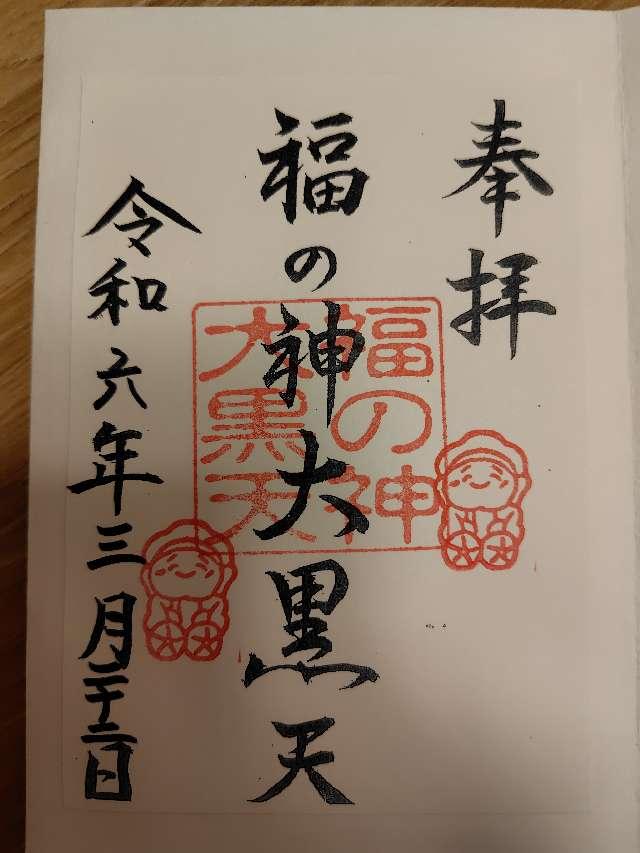 奉拝
福の神大黒天
福の神
大黒天
令和六年三月二十二日